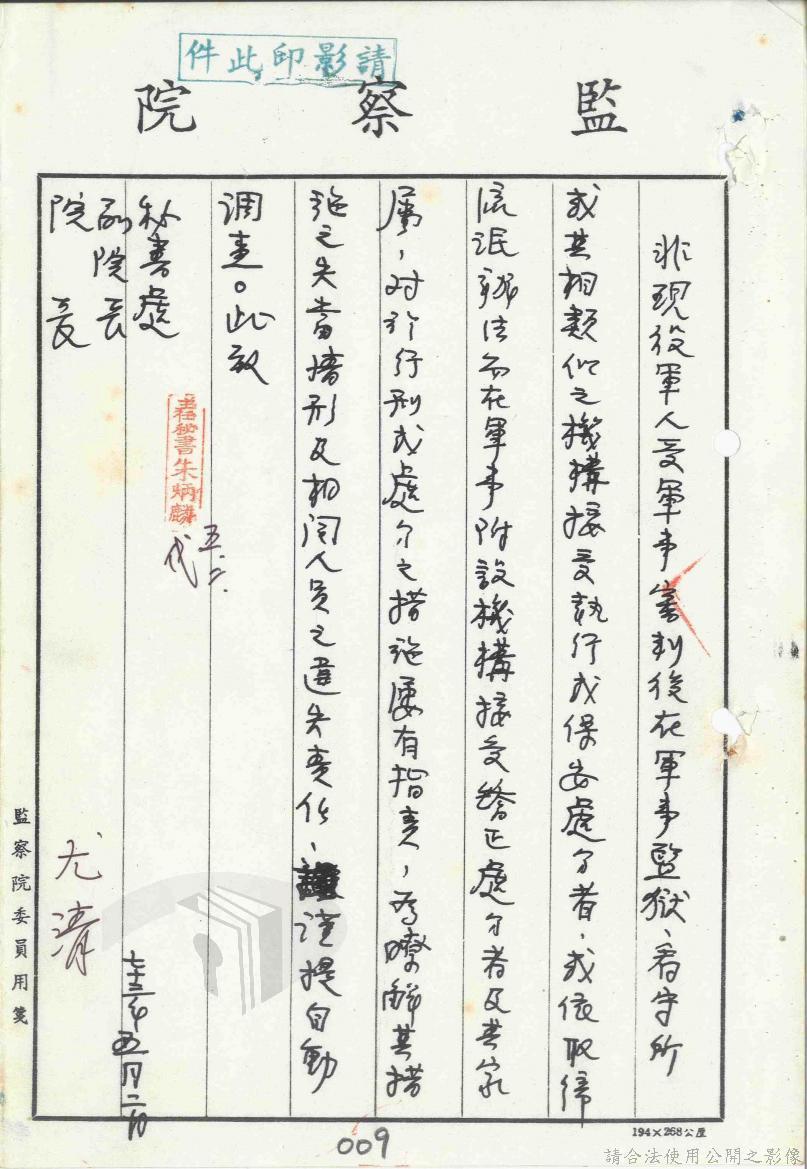 請影印此件
監察院
非現役軍人受軍事審判後在軍事監獄、看守所
或其相類似之機構接受執行或保安處分者，或依取締
流氓辦法而在軍事附設機構接受矯正處分者及其家
屬，对於行刑或處分之措施屢有指責，為瞭解其措
施之失當情形及相関人員之違失責任、謹提自動
调查。此致
秘書處
副院長
院長
主任秘書朱炳麟
代
五.二.
尤清
七十三年五月二日
監察院委員用箋
194×268公厘
009
請合法使用公開之影像